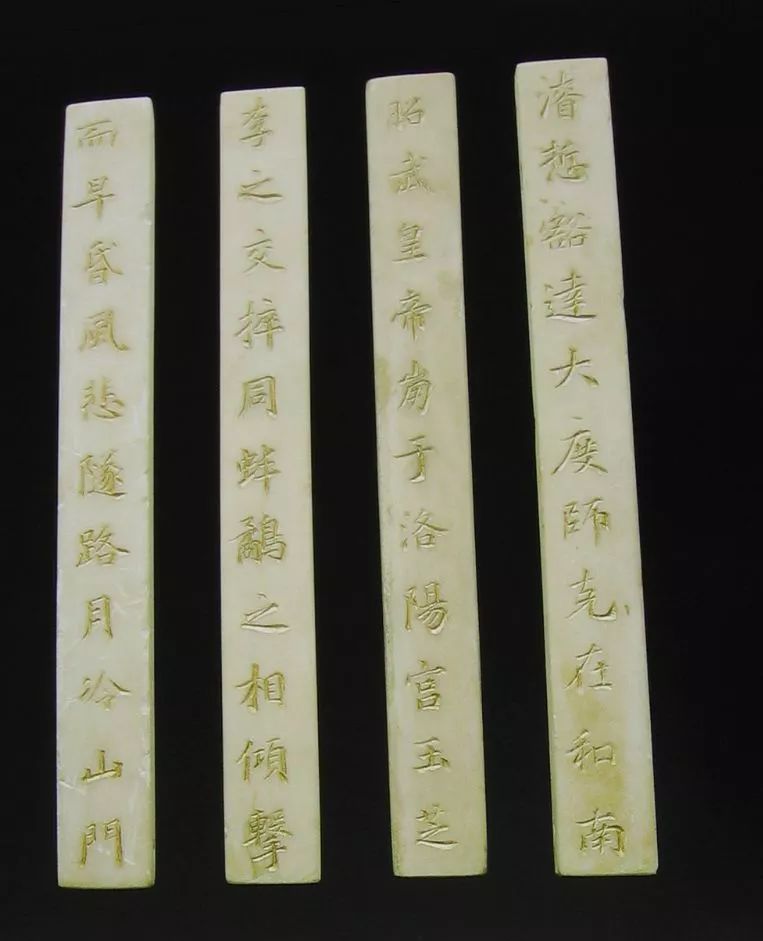 濬悊豁達大度師克在和南
昭武皇帝崩于洛陽宮玉芝
李之交捽同蚌鷸之相傾擊
早昏風悲隧路月冷山門